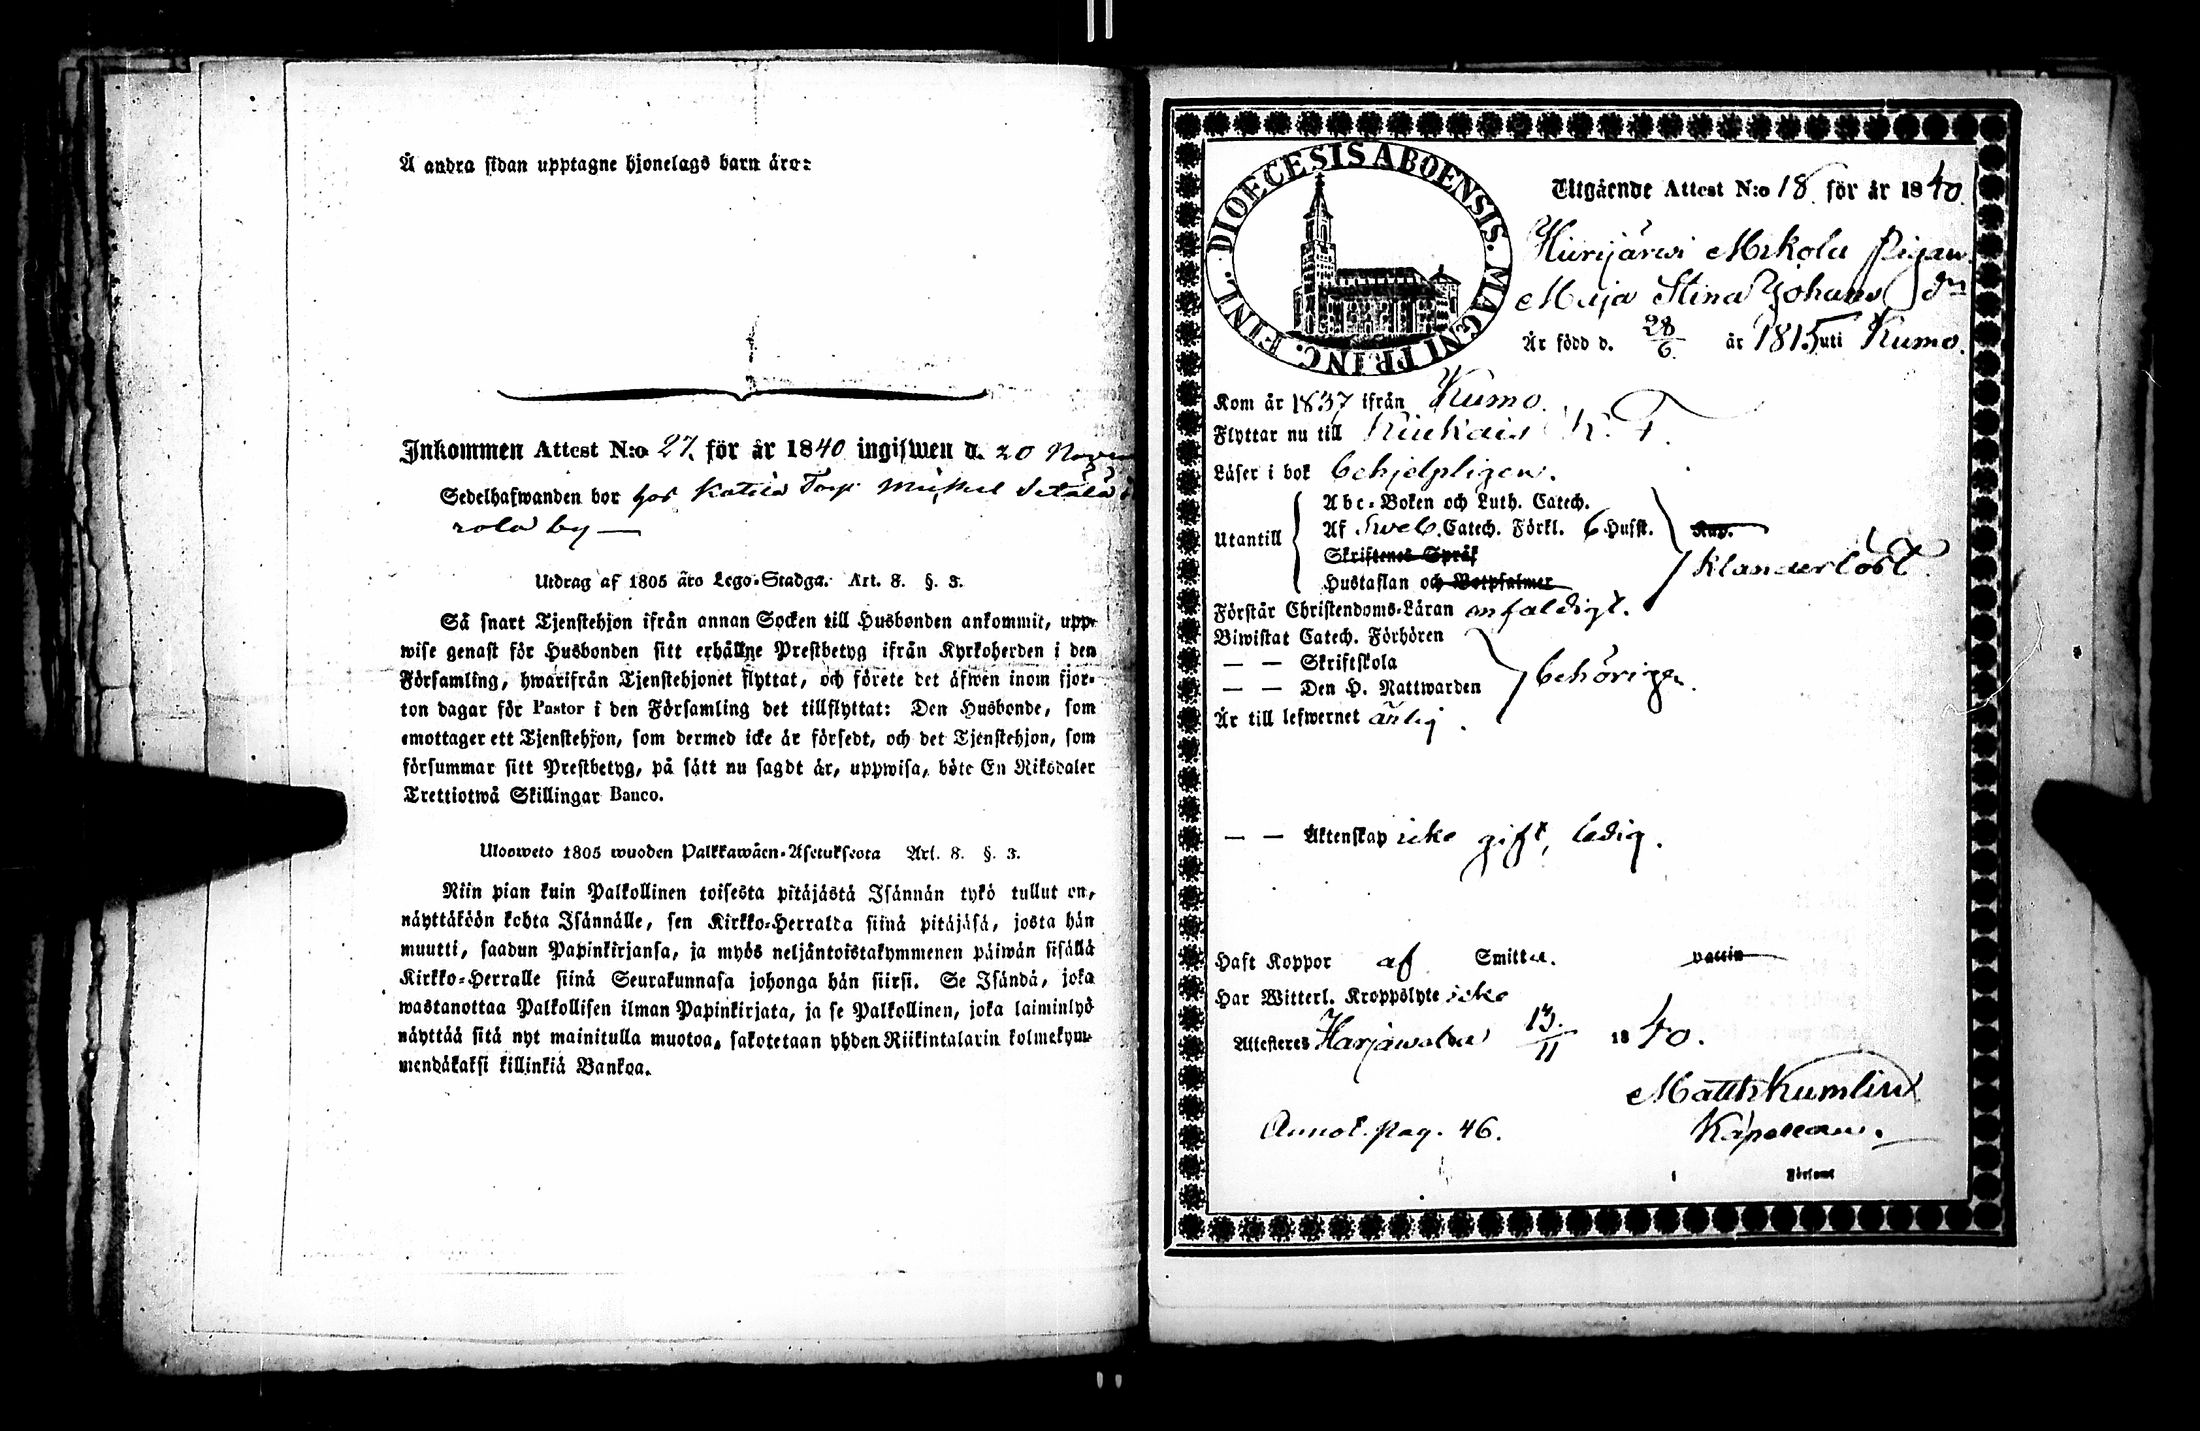 Å andra sidan upptagne hjonelags barn äro:
Inkommen Attest N:o 27. för år 1840 ingifwen d. 20
Sedelhafwanden bor hos Torp Michel
by
Utdrag af 1805 års Lego-Stadga. Art. 8. §. 3.
Så snart Tjenstehjon ifrån annan Socken till Husbonden ankommit, upp-
wise genast för Husbonden sitt erhållne Prestbetyg ifrån Kyrkoherden i den
Församling, hwarifrån Tjenstehjonet flyttat, och förete det äfwen inom fjor-
ton dagar för Pastor i den Församling det tillflyttat: Den Husbonde, som
emottager ett Tjenstehjon, som dermed icke är försedt, och det Tjenstehjon, som
försummar sitt Prestbetyg, på sätt nu sagdt är, uppwisa, böte En Riksdaler
Trettiotwå Skillingar Banco.
Ulosweto 1805 wuoden Palkkawäen-Asetuksesta Art. 8. §. 3.
Niin pian kuin Palkollinen toisesta pitäjästä Isännän tykö tullut on,
näyttäköön kohta Isännälle, sen Kirkko-Herralda siinä pitäjäsä, josta hän
muutti, saadun Papinkirjansa, ja myös neljäntoistakymmenen päiwän sisällä
Kirkko-Herralle siinä Seurakunnasa johonga hän siirsi. Se Isändä, joka
wastanottaa Palkollisen ilman Papinkirjata, ja se Palkollinen, joka laiminlyö
näyttää sitä nyt mainitulla muotoa, sakotetaan yhden Riikintalarin kolmekym-
mendäkaksi killinkiä Bankoa.
DIOECESIS ABOENSIS. MAGNI PRINC. FINL.
Utgående Attest N:o 18 för år 1840.
Hiirijärwi Mikola Pigan
Maja Stina Johans dr
Är född d. 28/6 år 1815 uti Kumo.
Kom år 1837 ifrån Kumo.
Flyttar nu till Kiukais K. F.
Läser i bok behjelpligen.
Abc-Boken och Luth. Catech.
Utantill Af Sweb. Catech. Förkl. 6 Hufst.
Skriftenes Språk
Hustaflan och Botpsalmer
klanderlöst.
Förstår Christendoms-Läran enfaldigt.
Biwistat Catech. Förhören
— — Skriftskola
— — Den H. Nattwarden
behörigen.
Är till lefwernet ärlig.
— — Äktenskap icke gift, ledig.
Haft Koppor af Smitta. vaccin
Har Witterl. Kroppslyte icke
Attesteres Harjawalda 13/11 1840.
Matth Kumlin
Kapellan.
Annot. pag. 46.
i Församl